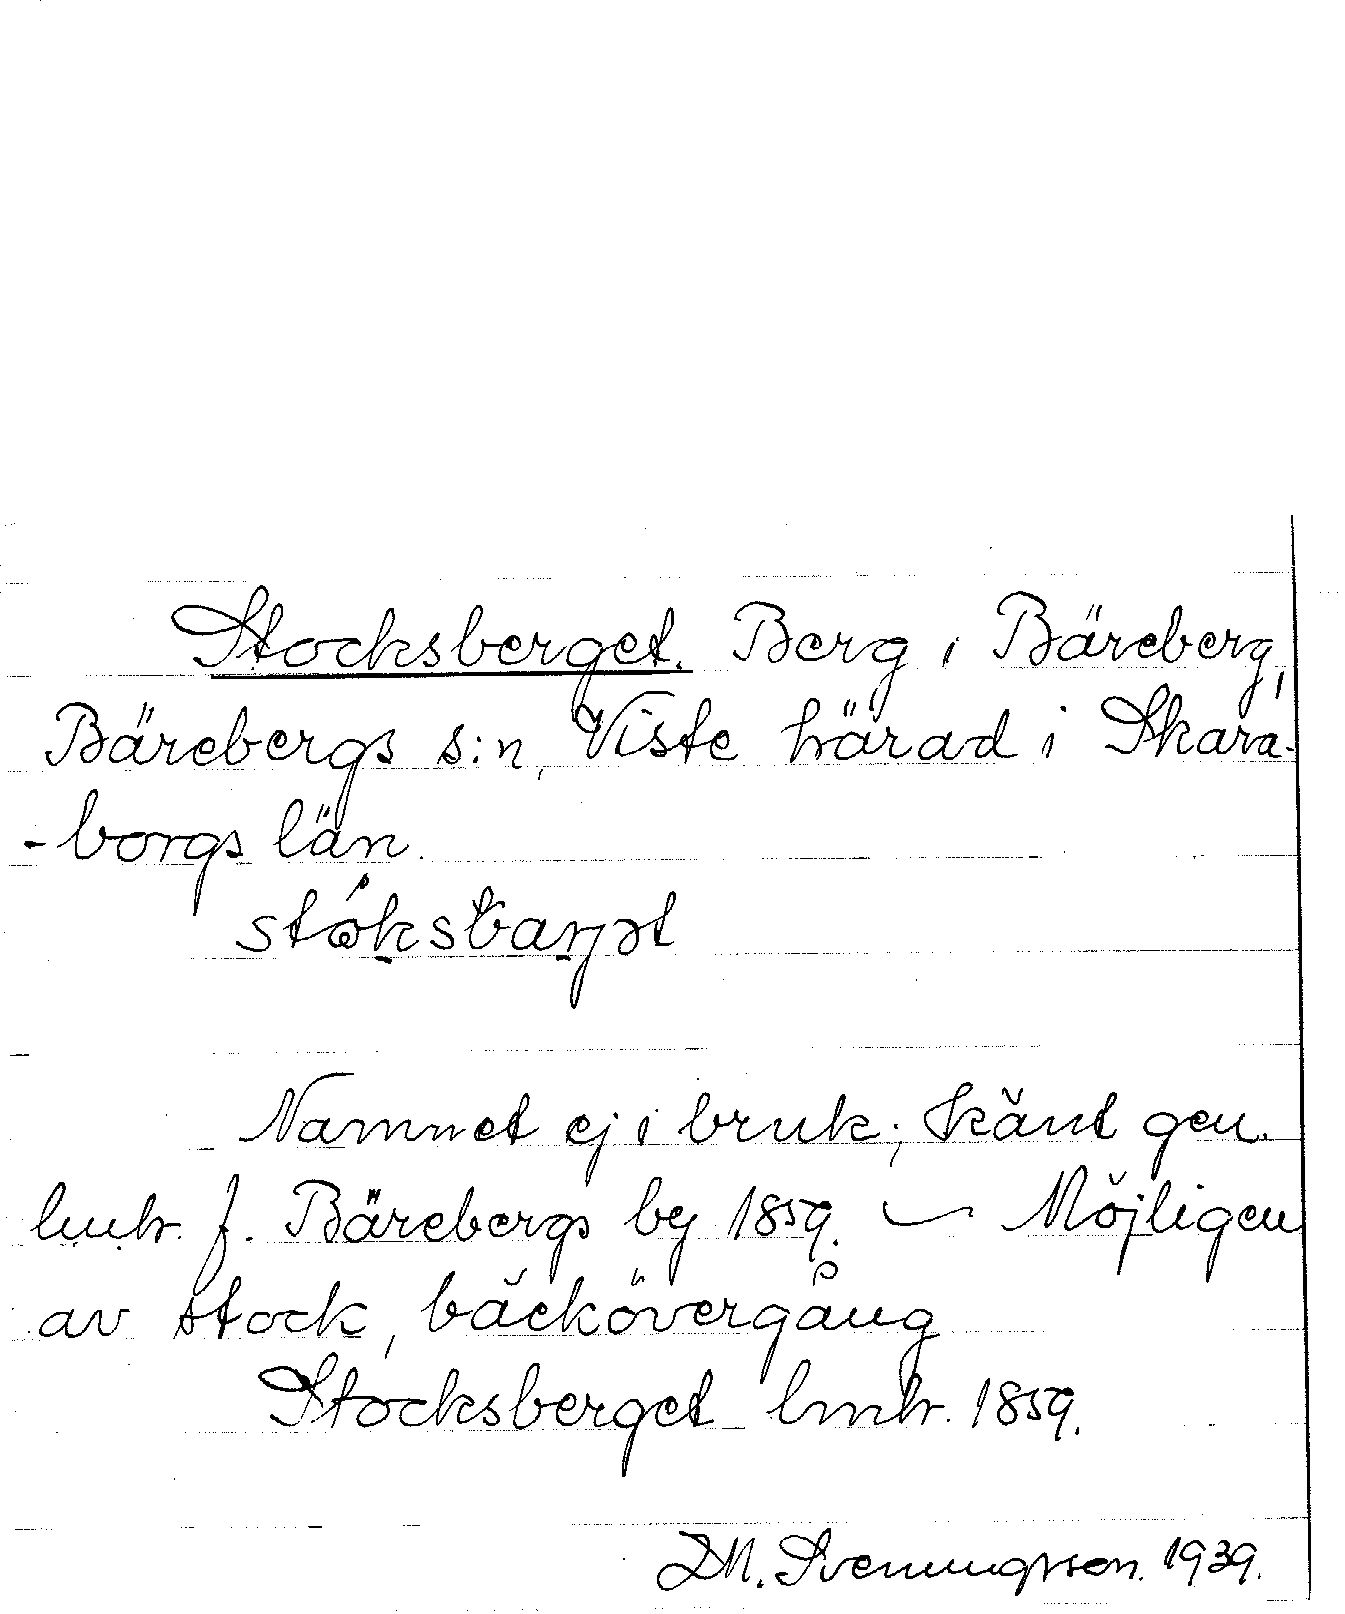 Stocksberget. Berg i Bäreberg,
Bärebergs s:n, Viste härad i Skara-
-borgs län.
Namnet ej i bruk; känt gen.
lmtr. f. Bärebergs by 1859. — Möjligen
av stock, bäckövergång
Stocksberget lmtr. 1859.
D.M. Svenungsson. 1939.